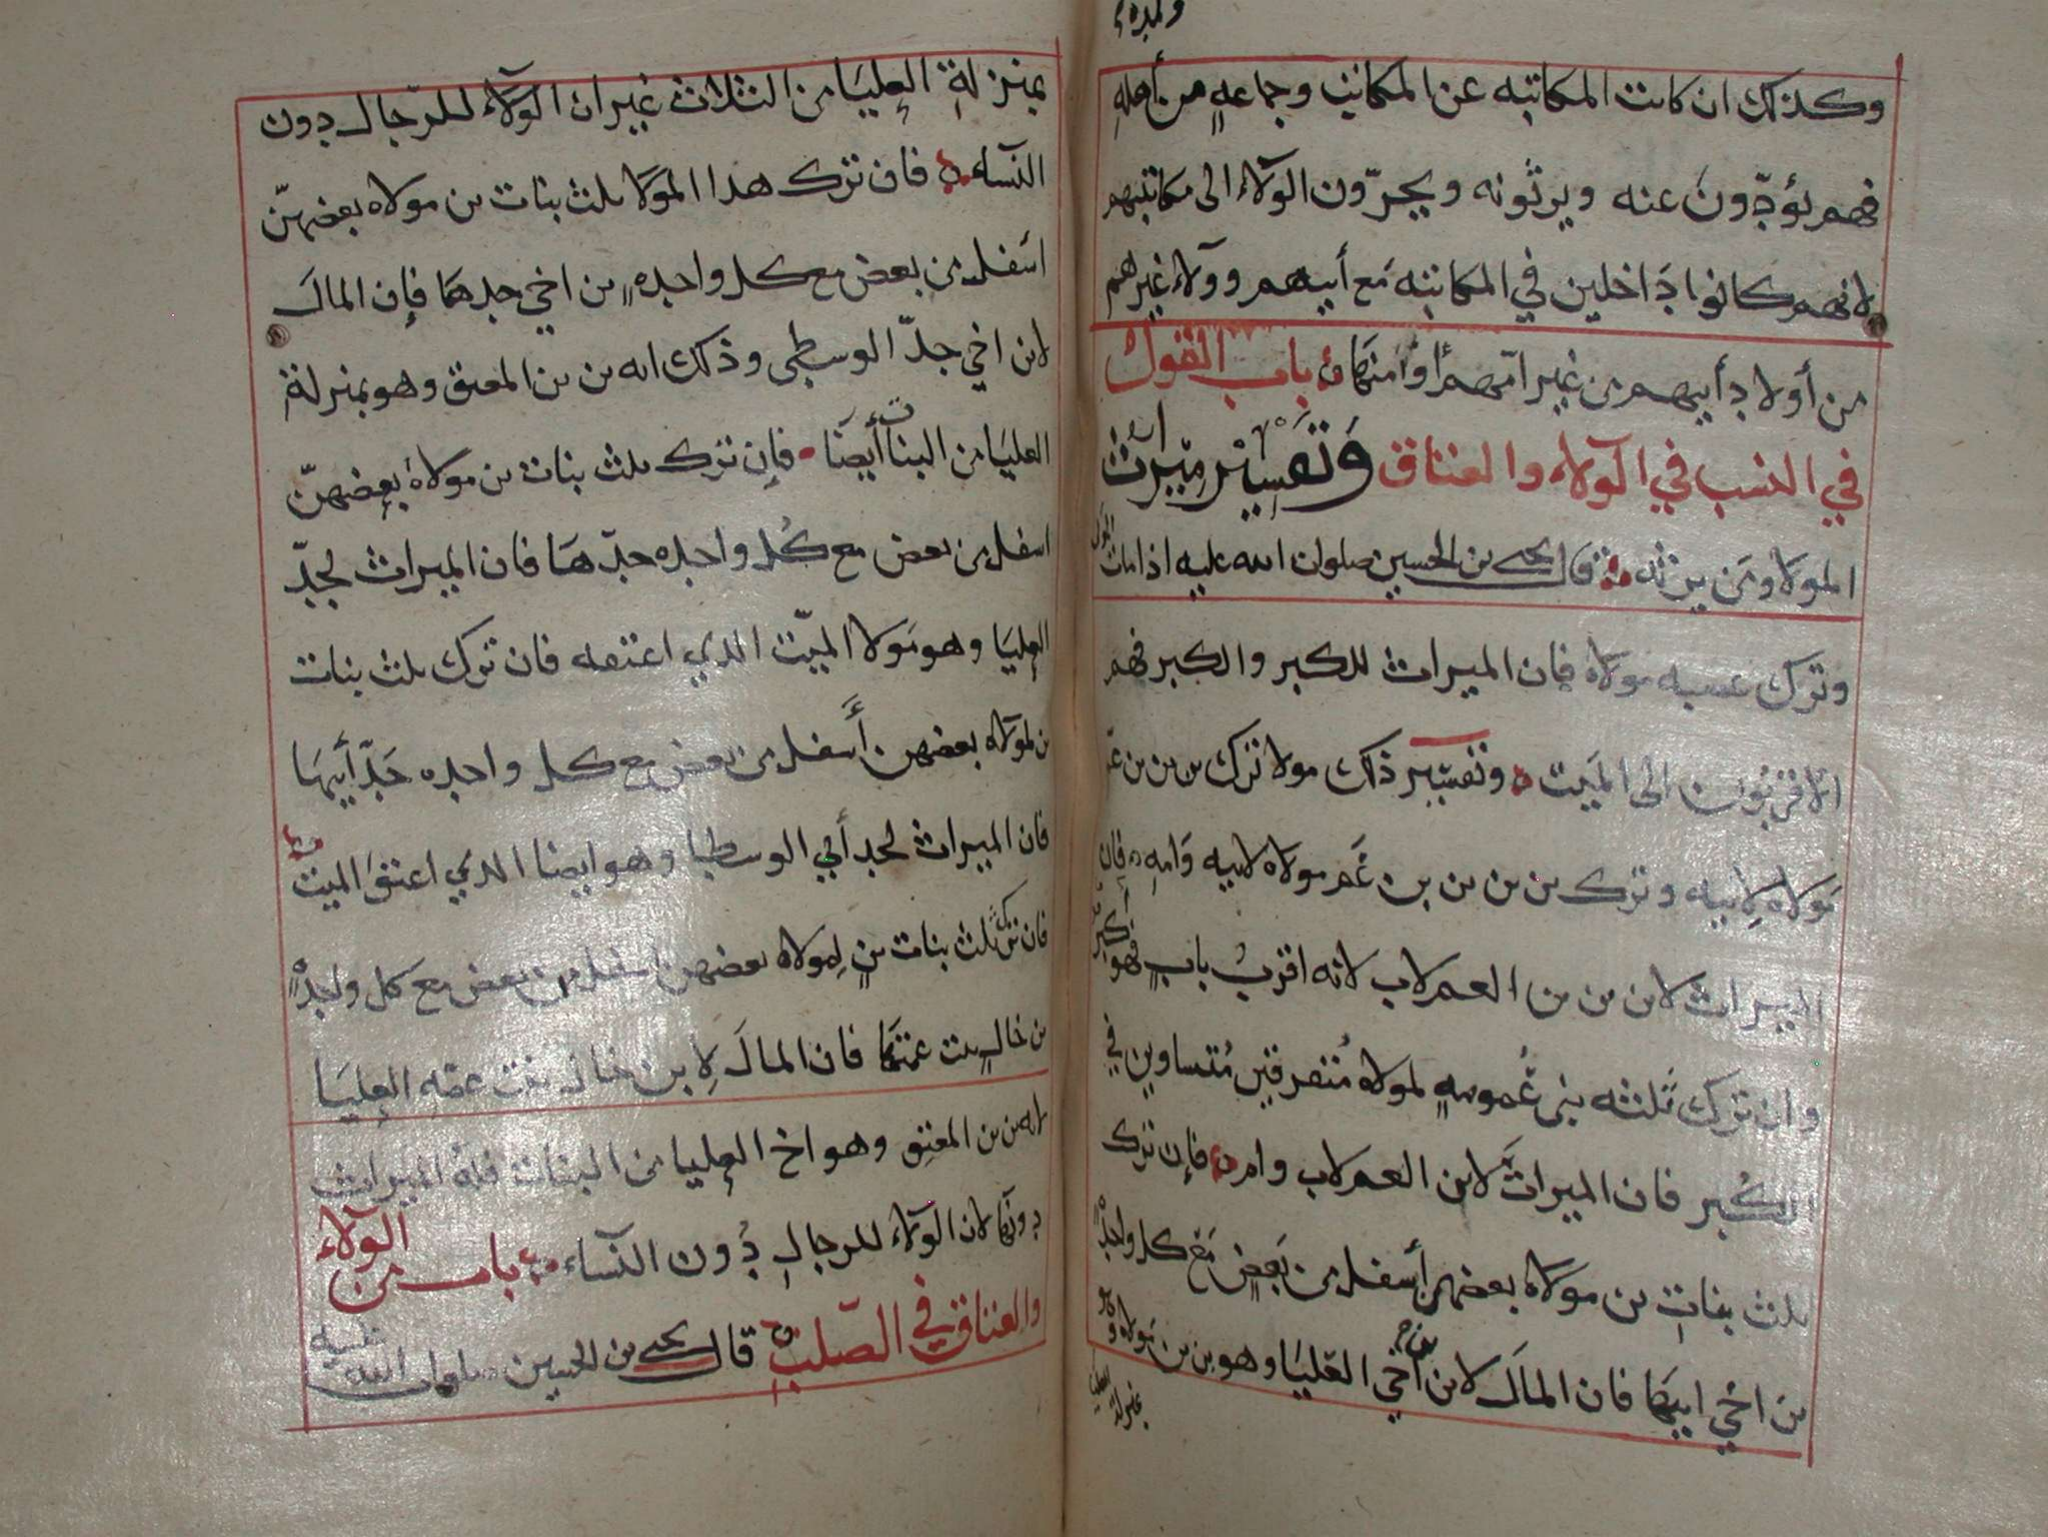 وكذلك ان كانت المكاتبه عن المكاتب وجماعةٍ من أهلهِ
فهم يؤدّونَ عنه ويرثونه ويجرّون الولآء الى مكاتبهم
لانهم كانوا دَاخلين في المكاتبه مَع أبيهم وولآء غيرهم
من أولاد أبيهم من غير امّهم أو امتهما باب القول
في النسب في الولآء والعتاق وَتفسِيْر مِيْراث
المولا ومَن يرثه قال يحيى بن الحسين صلوات الله عليه اذا مات
وترك عصبه مولاه فان الميراث للكبر والكبر فهم
الاقربُون الى الميت وتفسير ذلك مولا ترك بن بن بن عمّ
مَولاه لِابيه وترك بن بن بن بن عَم مولاه لابيه وَامهِ فان
الميراث لابن بن بن العم لاب لانه اقربُ بابٍ فهو أكبر
وان ترك ثلثه بنى عُمومهٍ لمولاه مُتفرقين مُتساوين في
الكُبر فان الميراثَ لابن العم لاب وام فإن ترك
ثلث بناتِ بن مولاه بعضهن أسفل من بَعضٍ مَع كل واحدهٍ
بن اخي ابيها فان المالَ لابن أخي العُليَا وهو بن بن مَولاه وهو
بمنزلة
بمنزلةِ العليَا من الثلاث غيران الولآء للرّجال دون
النسآء فان ترك هذا المولا ثلث بنات بن مولاه بعضهنّ
اسفل من بعض مع كل واحدهٍ بن اخي جدهَا فإن المالَ
لابن اخي جدّ الوسطى وذلك انه بن بن المعتق وهو بمنزلة
العليَا من البنات أيضًا فإن ترك ثلث بنات بن مولاهُ بعضهنّ
اسفل من بعض مع كُل واحده جدّهَا فان الميراث لجدّ
العليَا وهو مَولا الميّت الذي اعتقه فان ترك ثلث بنات
بن لمولاه بعضهن أسفل من بعض مع كل واحده جَدّ أبيهَا
فان الميراث لجد أبي الوسطيا وهو ايضا الذي اعتقَ الميت
فان ترك ثلث بنات بنٍ لِمولاه بعضهن اسفل من بعض مع كل واحدهٍ
بن خالٍ بنت عمتهَا فان المالَ لِابن خال بنت عمه العليَا
لانه بن بن المعتِق وهو اخ العليا من البنات فلهُ الميراث
دونهَا لان الولآء للرجالِ دُون النسآء باب من الولآء
والعتاق في الصّلب قال يحيى بن الحسين صلوات الله عليه